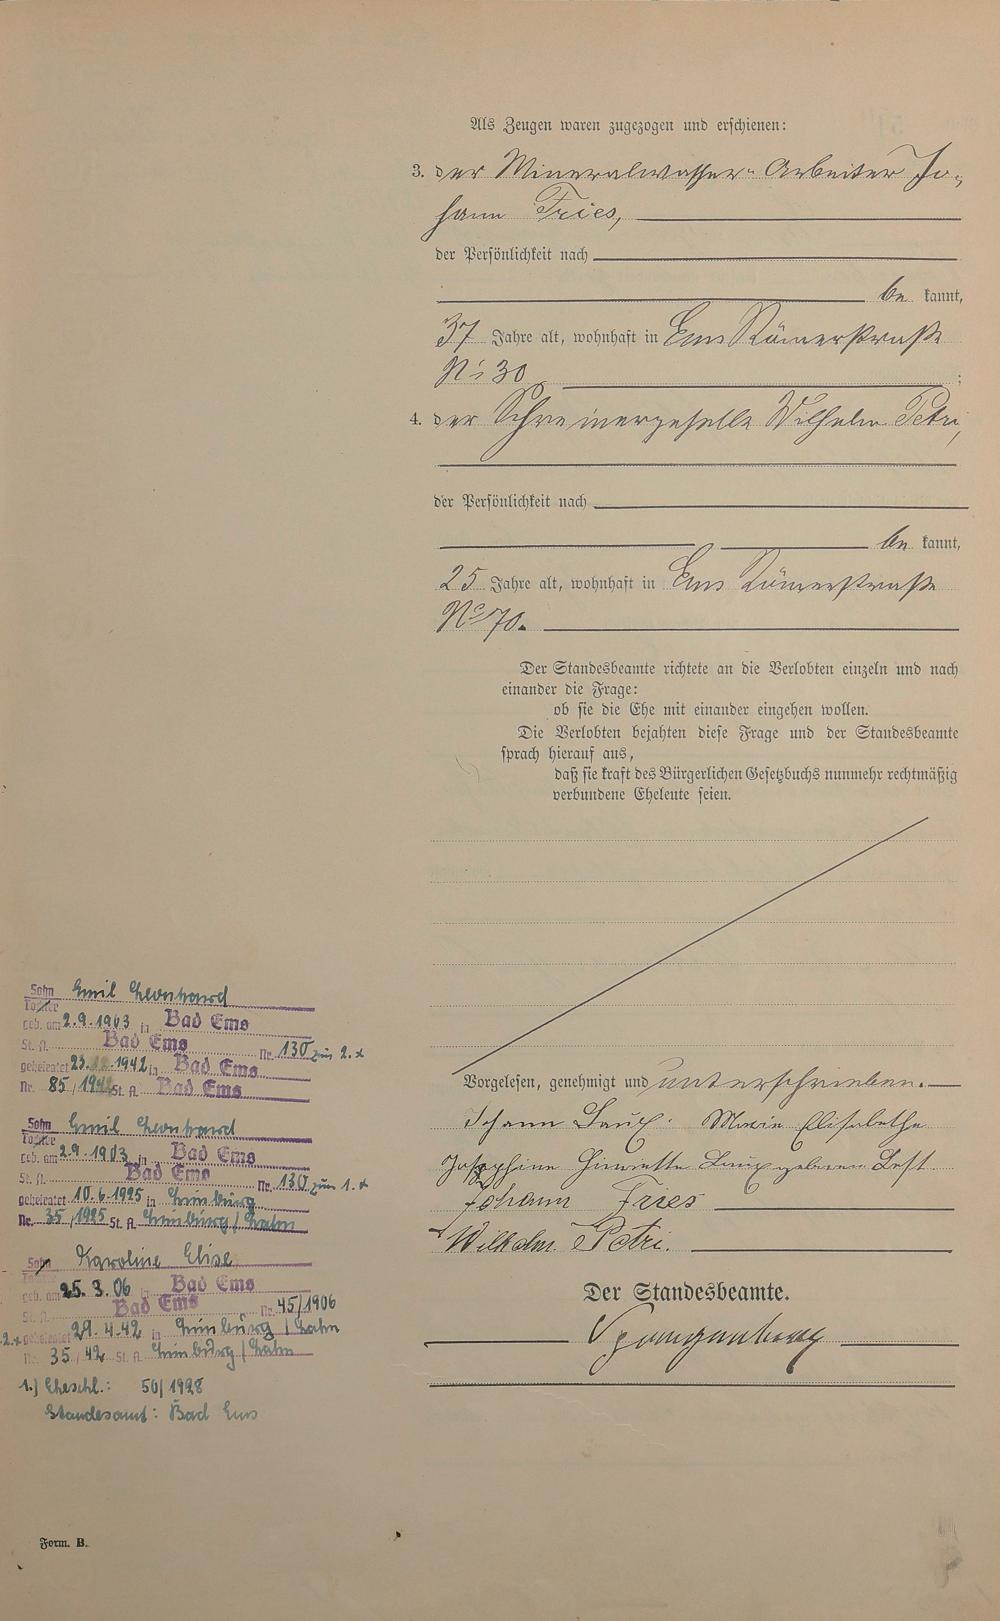 Als Zeugen waren zugezogen und erschienen:
3. der Mineralwasser-Arbeiter Jo-
hann Fries,
der Persönlichkeit nach
be kannt,
37 Jahre alt, wohnhaft in Ems Römerstraße
No 30 ;
4. der Schreinergeselle Wilhelm Petri,
der Persönlichkeit nach
be kannt,
25 Jahre alt, wohnhaft in Ems Römerstraße
No 70.
Der Standesbeamte richtete an die Verlobten einzeln und nach
einander die Frage:
ob sie die Ehe mit einander eingehen wollen.
Die Verlobten bejahten diese Frage und der Standesbeamte
sprach hierauf aus,
daß sie kraft des Bürgerlichen Gesetzbuchs nunmehr rechtmäßig
verbundene Eheleute seien.
Vorgelesen, genehmigt und unterschrieben.
Johann Laux. Marie Elisabethe
Josephine Henriette Laux geboren Best
Johann Fries
Wilhelm Petri.
Der Standesbeamte.
Sohn Emil Leonhard
Tochter
geb. am 2.9.1903 in Bad Ems
St. A. Bad Ems Nr. 130 zum 2. x
geheiratet 23. 1942 in Bad Ems
Nr. 85/1942 St. A. Bad Ems
Sohn Emil Leonhard
Tochter
geb. am 2.9.1903 in Bad Ems
St. A. Bad Ems Nr. 130 zum 1. x
geheiratet 10.6.1925 in Limburg
Nr. 35/1925 St. A. Limburg/Lahn
Sohn Karoline Elise
Tochter
geb. am 25.3.06 in Bad Ems
St. A. Bad Ems Nr. 45/1906
2.x geheiratet 29.4.42 in Limburg/Lahn
Nr. 35/42 St. A. Limburg/Lahn
1.) Eheschl.: 50/1928
Standesamt: Bad Ems
Form. B.